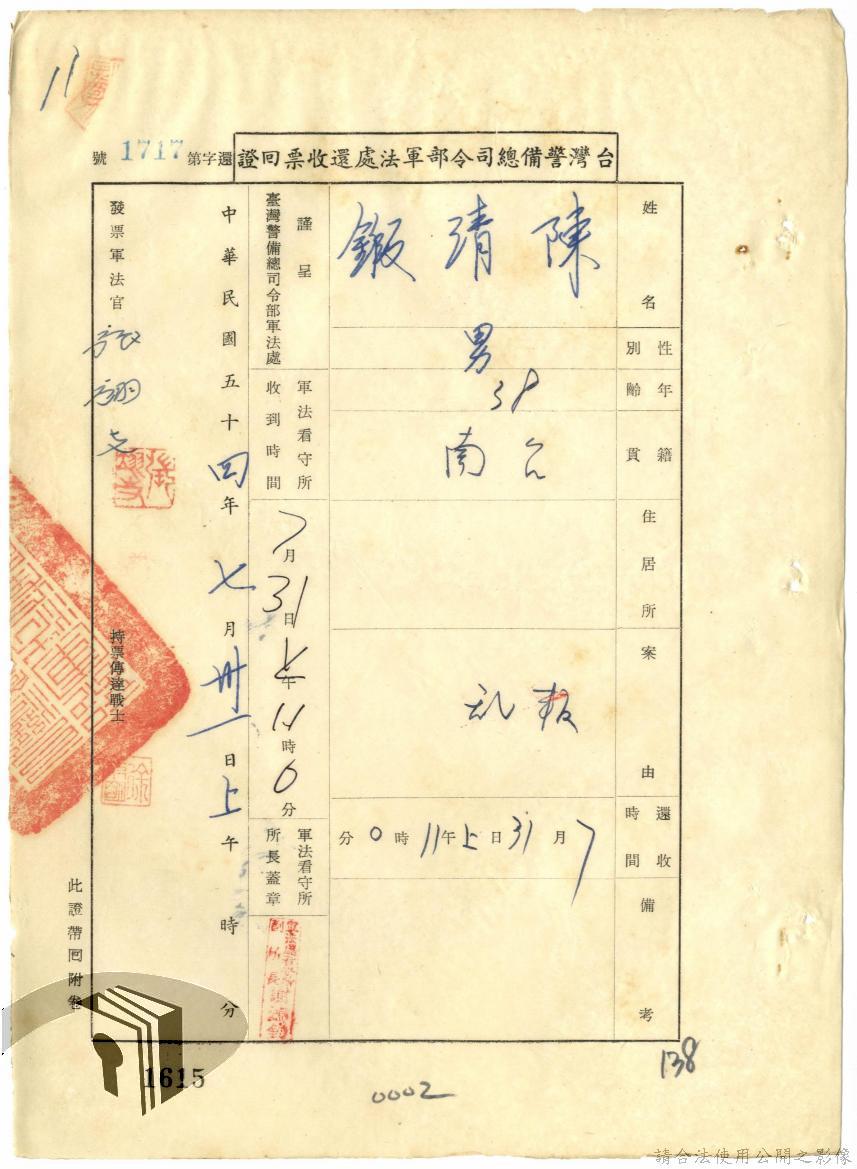 11
台灣警備總司令部軍法處還收票回證
還字第1717號
姓名
陳清鍛
性別
男
年齡
38
籍貫
台南
住居所
案由
叛乱
還收時間
7月31日上午11時0分
備考
謹呈
臺灣警備總司令部軍法處
軍法看守所
收到時間
7月31日上午11時0分
軍法看守所
所長蓋章
中華民國五十四年七月卅一日上午時分
發票軍法官
張翊文
持票傳達戰士
此證帶回附卷
1615
0002
138
請合法使用公開之影像